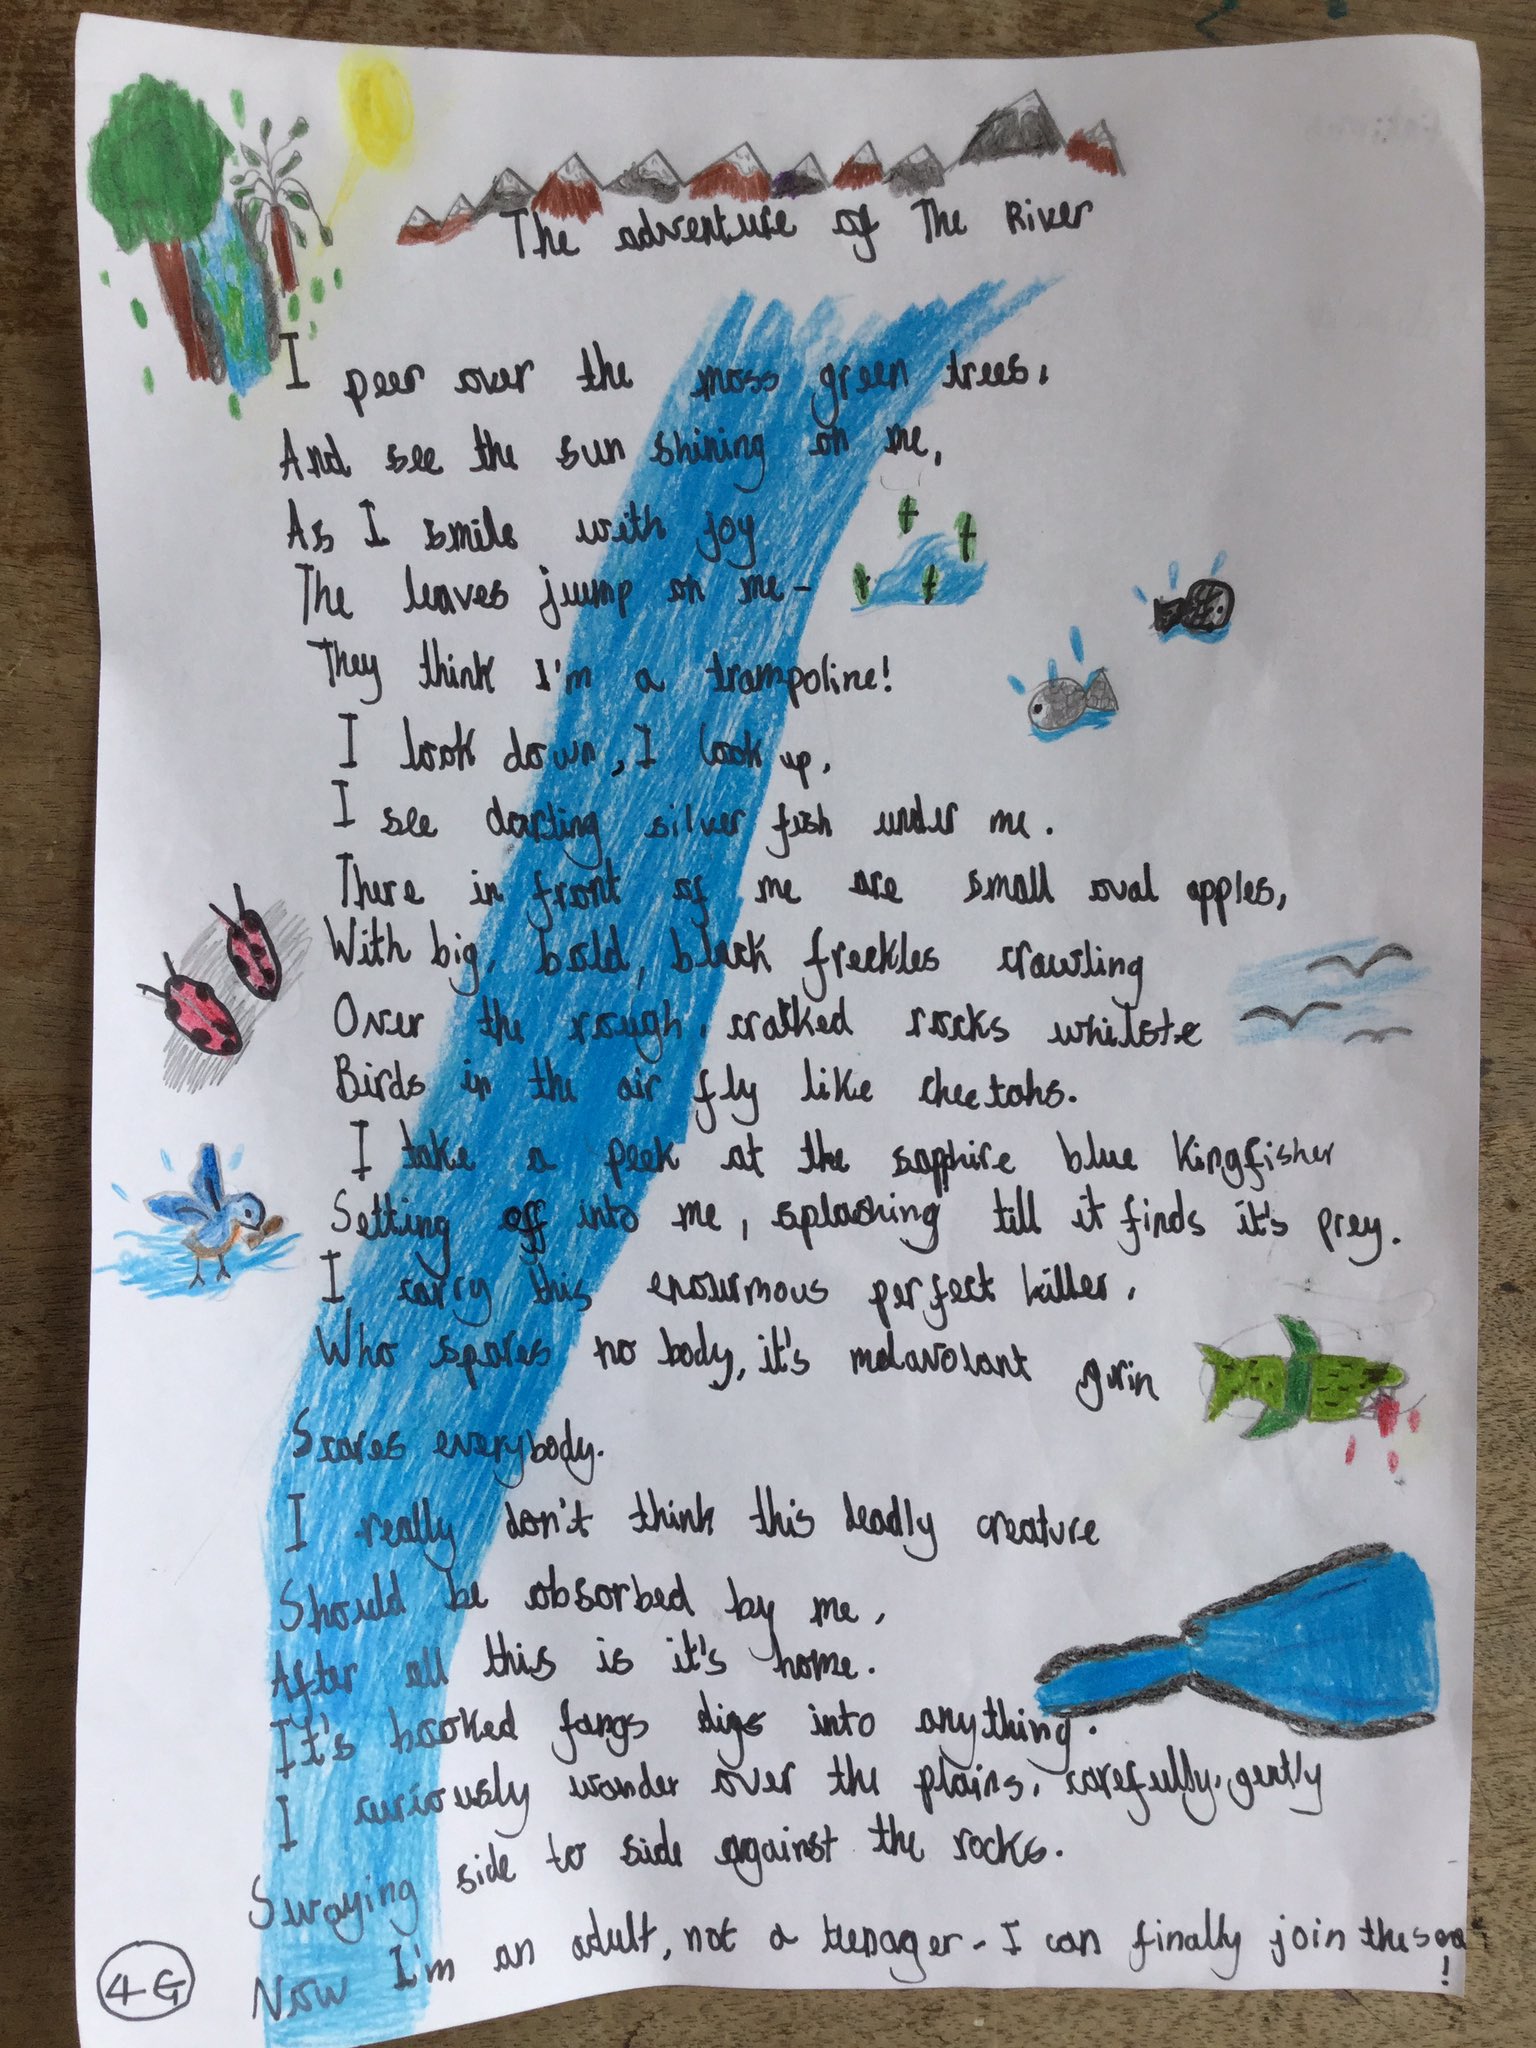 The adventure of The River
I peer over the moss green trees,
And see the sun shining on me,
As I smile with joy
The leaves jump on me -
They think I'm a trampoline!
I look down, I look up,
I see darting silver fish under me.
There in front of me are small oval apples,
With big, bold, black freckles crawling
Over the rough, cratked rocks whilste
Birds in the air fly like cheetahs.
I take a peek at the sapphire blue kingfisher
Setting off into me, splashing till it finds it's prey.
I carry this enourmous perfect killer,
Who spares no body, it's malavolant grin
Scares everybody.
I really don't think this deadly creature
Should be absorbed by me,
After all this is it's home.
It's hooked fangs digs into anything.
I curiously wonder over the plains, carefully, gently
Swaying side to side against the rocks.
Now I'm an adult, not a teenager - I can finally join the sea!
4G